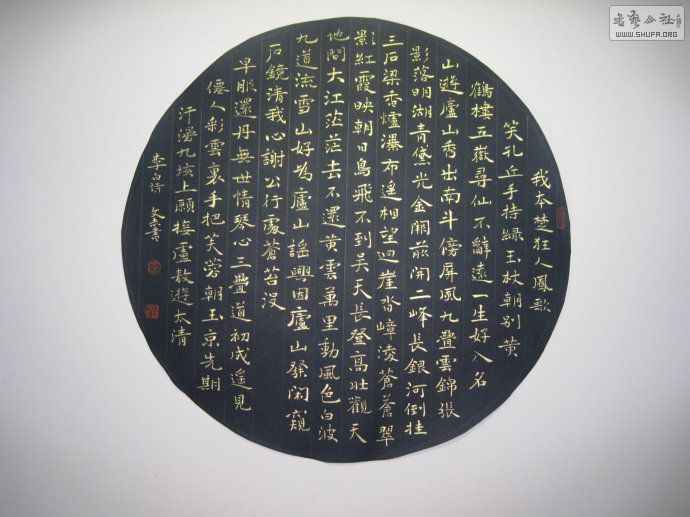 我本楚狂人鳳歌
笑孔丘手持綠玉杖朝別黃
鶴樓五嶽尋仙不辭遠一生好入名
山遊廬山秀出南斗傍屏風九疊雲錦張
影落明湖青黛光金闕前開二峰長銀河倒挂
三石梁香爐瀑布遙相望迴崖沓嶂凌蒼蒼翠
影紅霞映朝日鳥飛不到吳天長登高壯觀天
地間大江茫茫去不還黃雲萬里動風色白波
九道流雪山好為廬山謠興因廬山發閑窺
石鏡清我心謝公行處蒼苔沒
早服還丹無世情琴心三疊道初成遙見
僊人彩雲裏手把芙蓉朝玉京先期
汗漫九垓上願接盧敖遊太清
李白詩 書
書藝公社
WWW.SHUFA.ORG